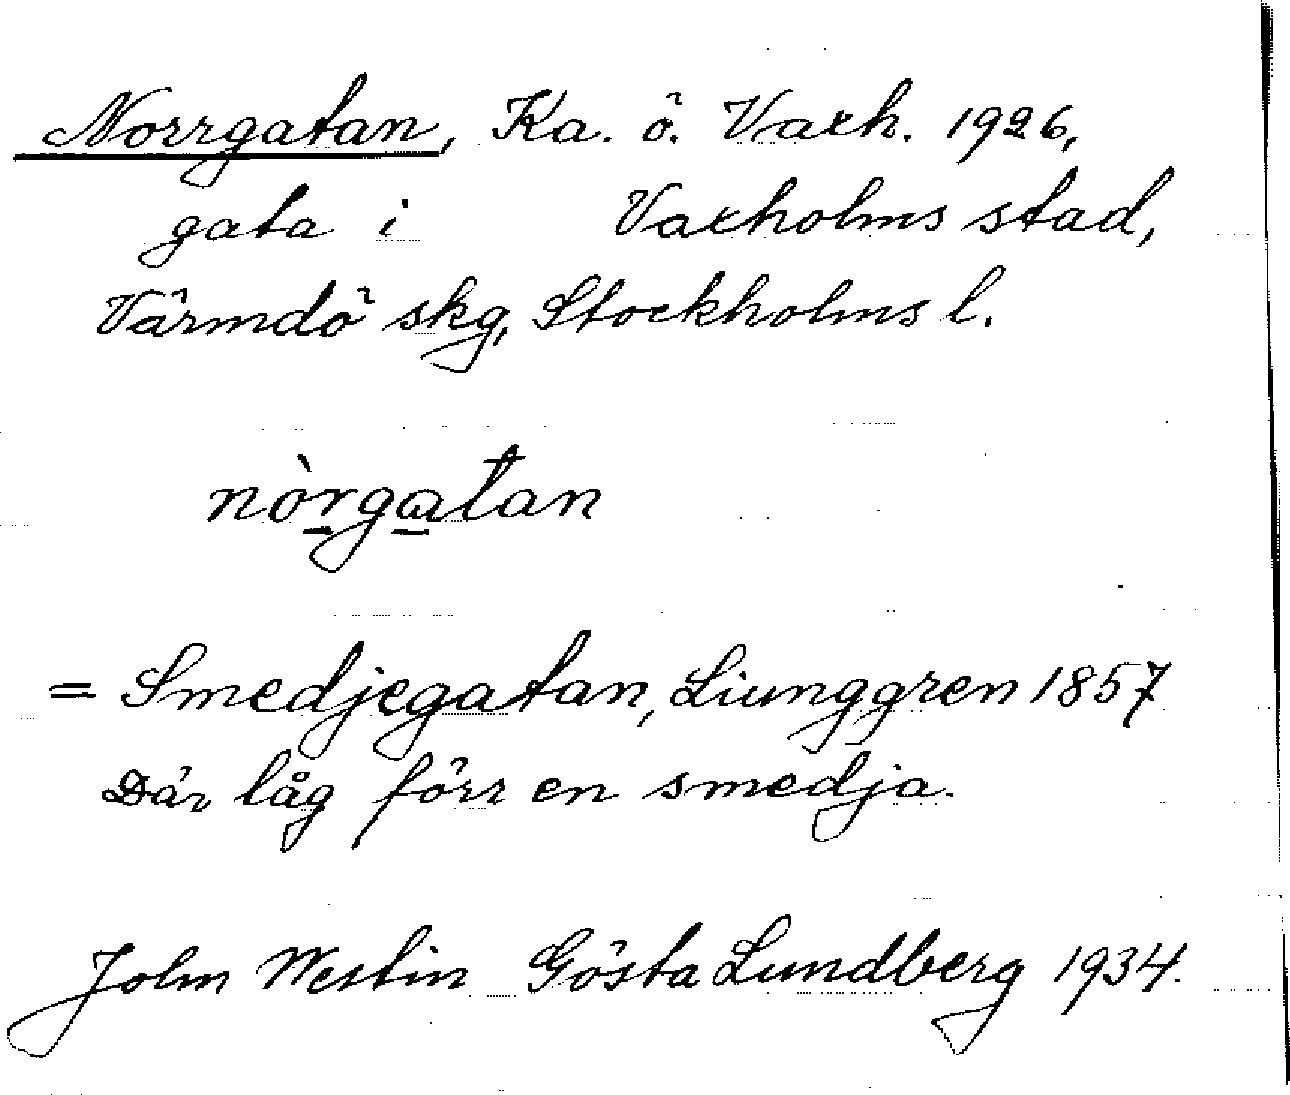 Norrgatan, Ka. ö. Vaxh. 1926,
gata i Vaxholms stad,
Värmdö skg, Stockholms l.
nòrgatan
= Smedjegatan, Liunggren 1857
Där låg förr en smedja.
John Westin Gösta Lundberg 1934.